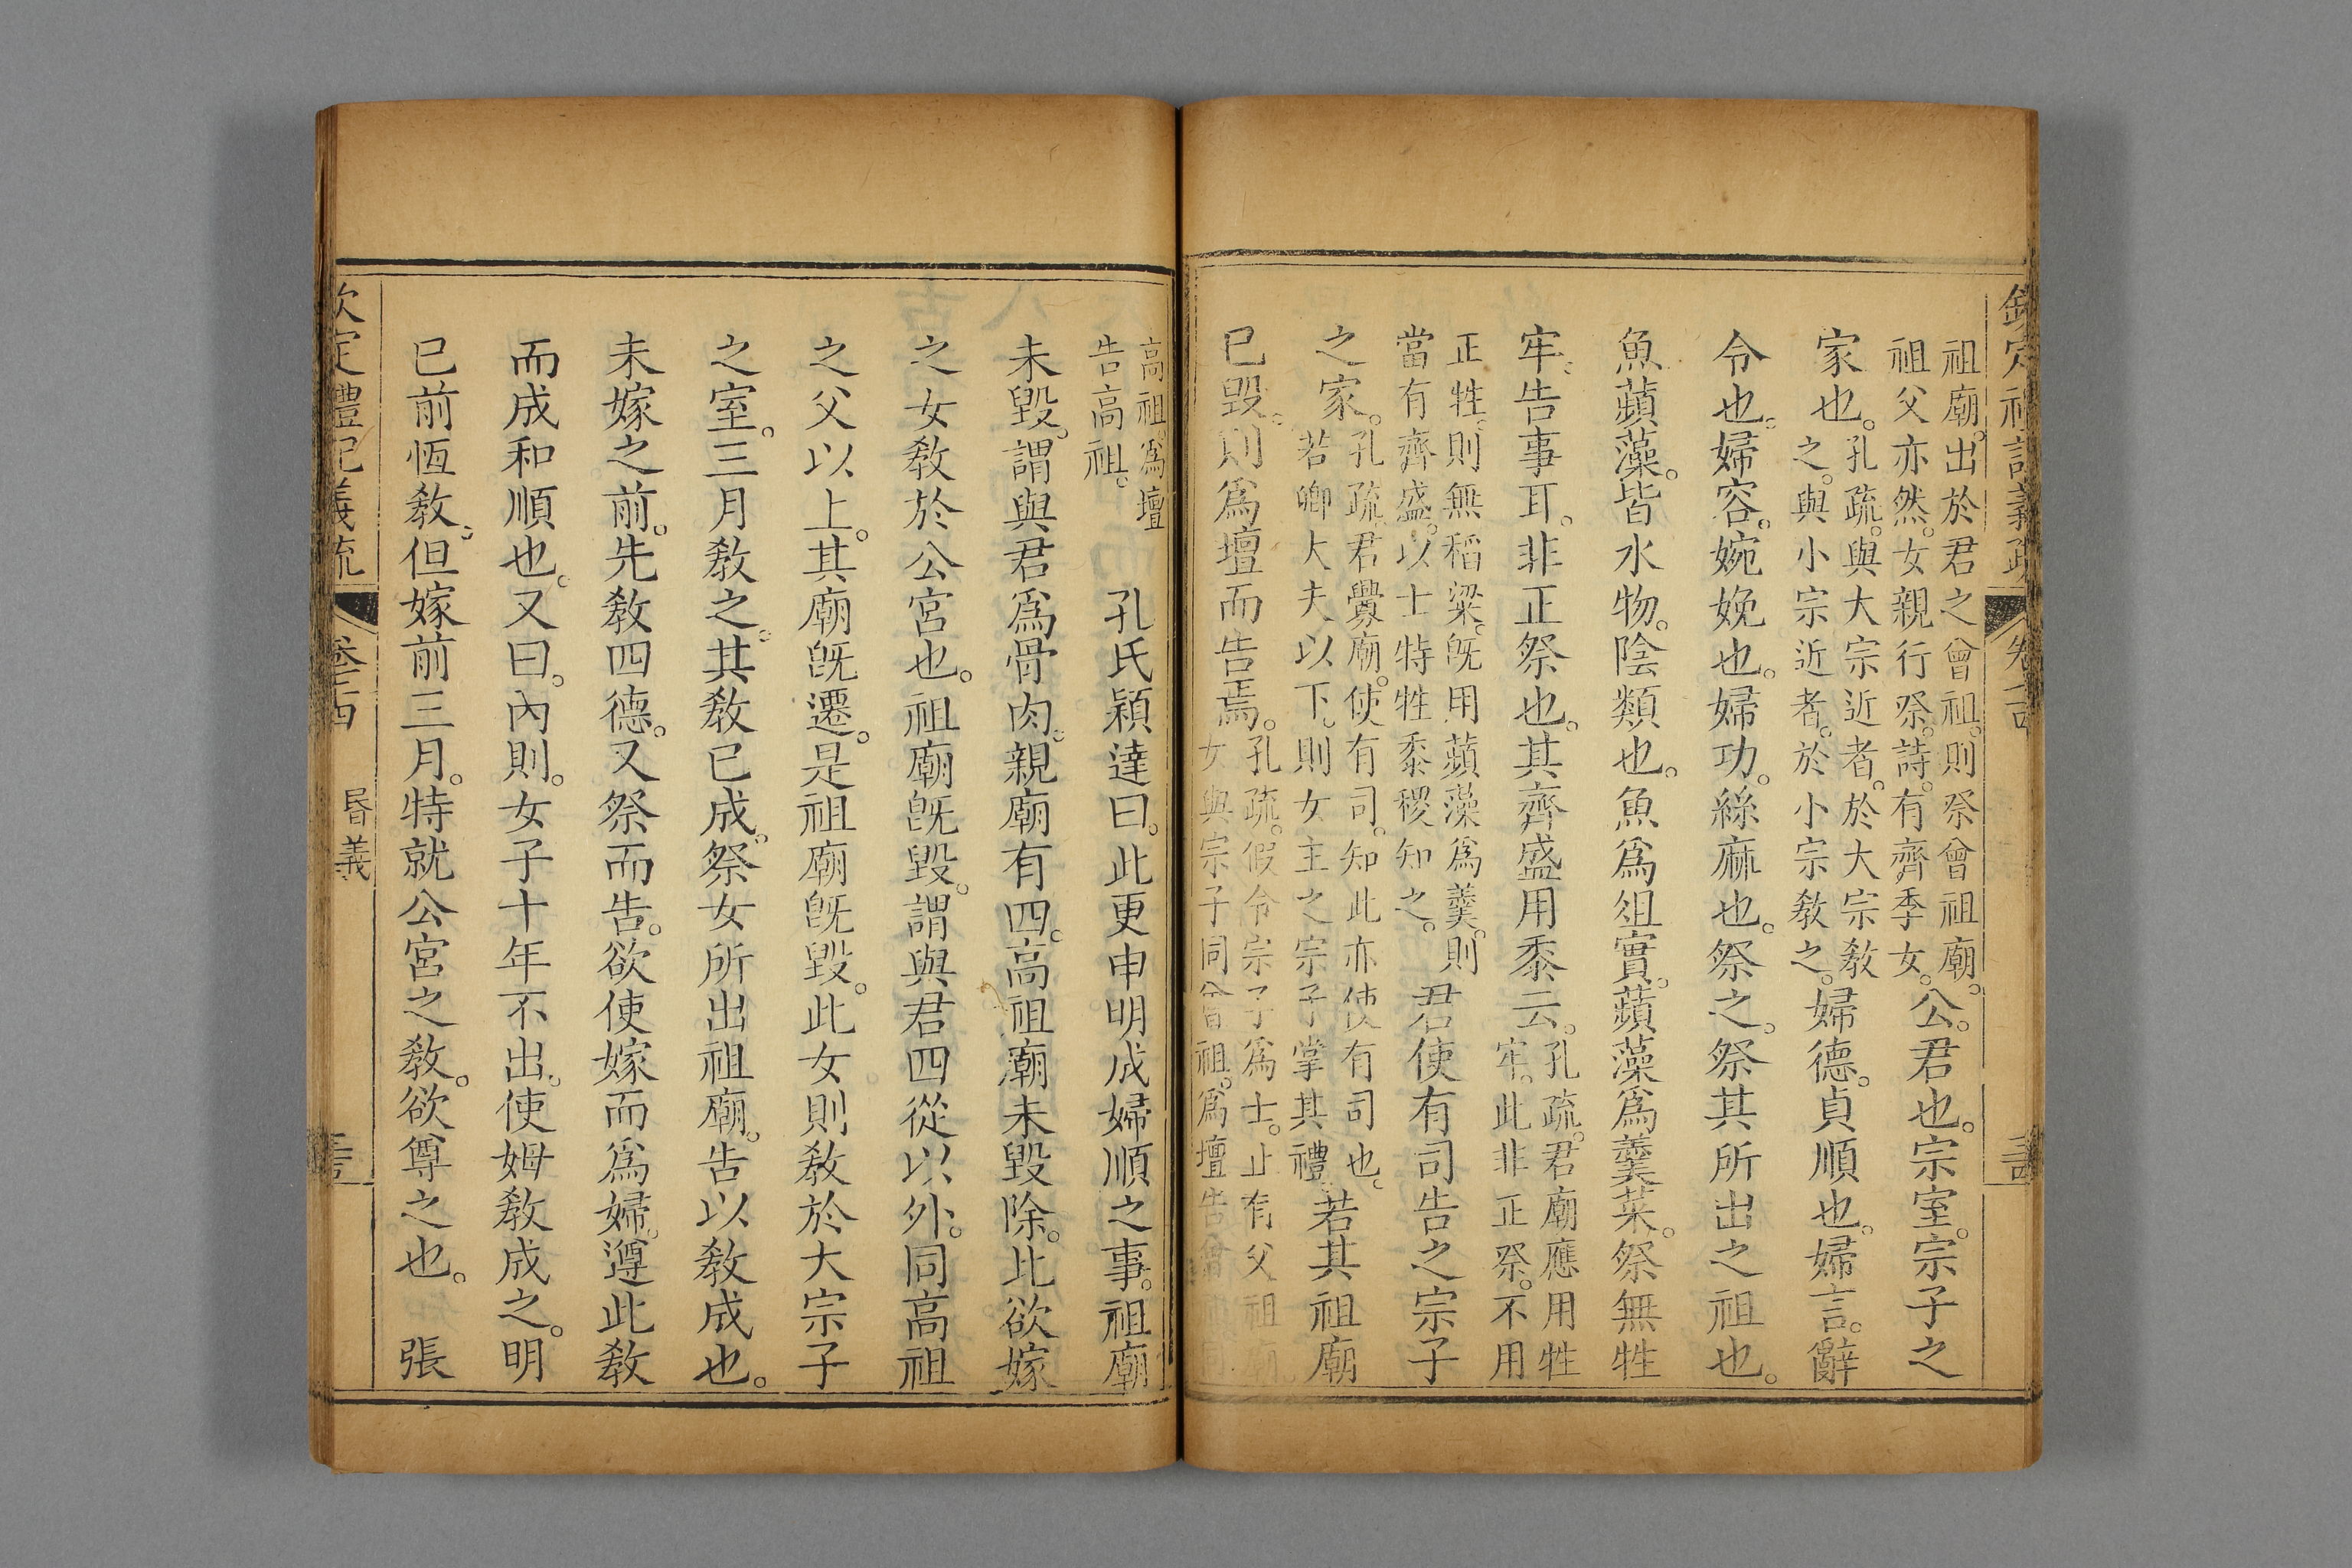 祖廟。出於君之曾祖。則祭曾祖廟。
祖父亦然。女親行祭。詩。有齊季女。
公。君也。宗室。宗子之
家也。
孔疏。與大宗近者。於大宗敎
之。與小宗近者。於小宗敎之。
婦德。貞順也。婦言。辭
令也。婦容。婉娩也。婦功。絲麻也。祭之。祭其所出之祖也。
魚蘋藻。皆水物。陰類也。魚爲俎實。蘋藻爲羹菜。祭無牲
牢。告事耳。非正祭也。其齊盛用黍云。
孔疏。君廟應用牲
牢。此非正祭。不用
正牲。則無稻粱。旣用蘋藻爲羹。則
當有齊盛。以士特牲黍稷知之。
君使有司告之宗子
之家。
孔疏。君釁廟。使有司。知此亦使有司也。
若卿大夫以下。則女主之宗子掌其禮。
若其祖廟
已毀。則爲壇而告焉。
孔疏。假令宗子爲士。止有父祖廟。
女與宗子同曾祖。爲壇告曾
高祖。爲壇
告高祖。
孔氏穎達曰。此更申明成婦順之事。祖廟
未毀。謂與君爲骨肉。親廟有四。高祖廟未毀除。此欲嫁
之女敎於公宮也。祖廟旣毀。謂與君四從以外。同高祖
之父以上。其廟旣遷。是祖廟旣毀。此女則敎於大宗子
之室。三月敎之。其敎已成。祭女所出祖廟。告以敎成也。
未嫁之前。先敎四德。又祭而告。欲使嫁而爲婦。遵此敎
而成和順也。又曰。內則。女子十年不出。使姆敎成之。明
已前恆敎。但嫁前三月。特就公宮之敎。欲尊之也。　張
欽定禮記義疏　卷　昬義